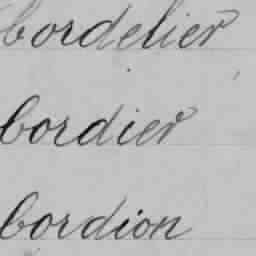 Cordelier
Cordier
Cordion